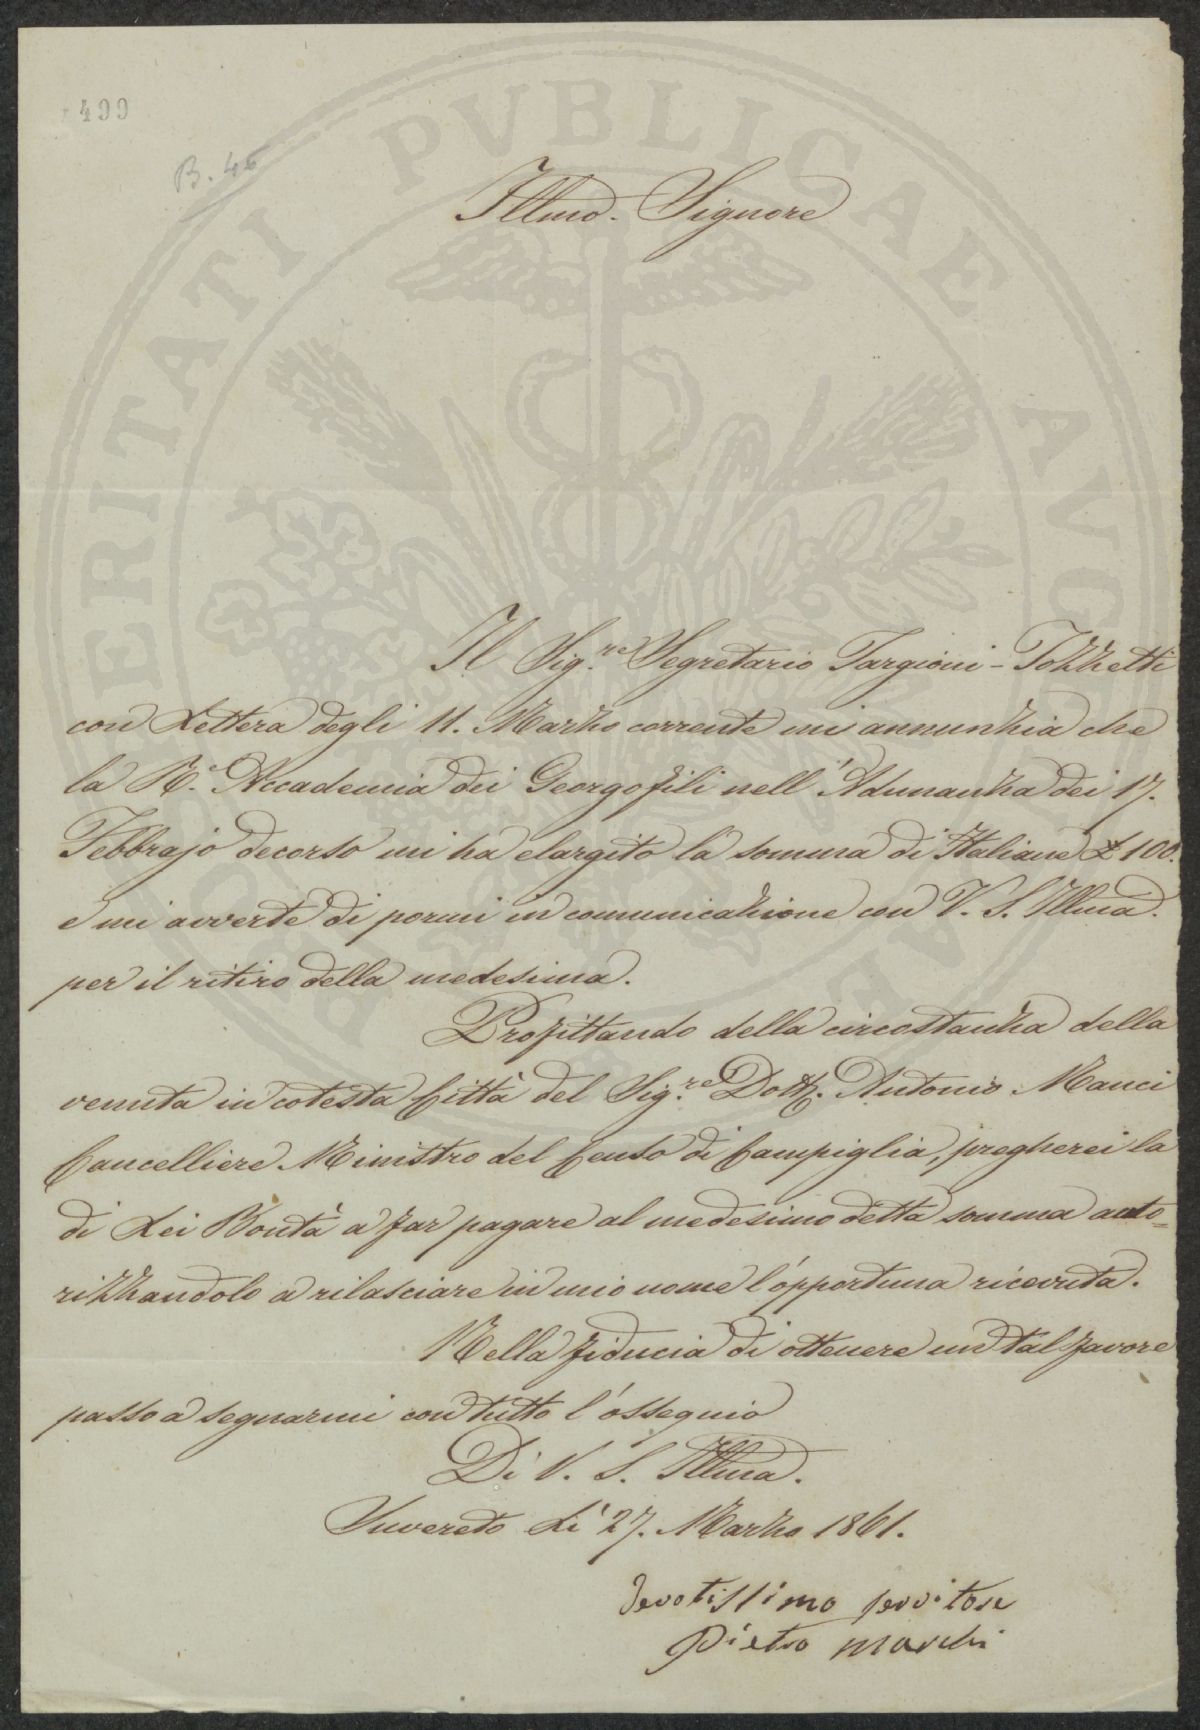 499
B. 46
Illmo. Signore
Il Sig.re Segretario Targioni-Tozzetti
con Lettera degli 11. Marzo corrente mi annunzia che
la R.e Accademia dei Georgofili nell'Adunanza dei 17.
Febbrajo decorso mi ha elargito la somma di Italiane £ 100.
e mi avverte di pormi in comunicazione con V. S. Illma.
per il ritiro della medesima.
Profittando della circostanza della
venuta in cotesta Città del Sig.re Dott. Antonio Manci
Cancelliere Ministro del Censo di Campiglia, pregherei la
di Lei Bontà a far pagare al medesimo detta somma auto=
rizzandolo a rilasciare in mio nome l'opportuna ricevuta.
Nella fiducia di ottenere un tal favore
passo a segnarmi con tutto l'ossequio
Di V. S. Illma.
Suvereto Li 27. Marzo 1861.
devotissimo servitore
Pietro Marchi